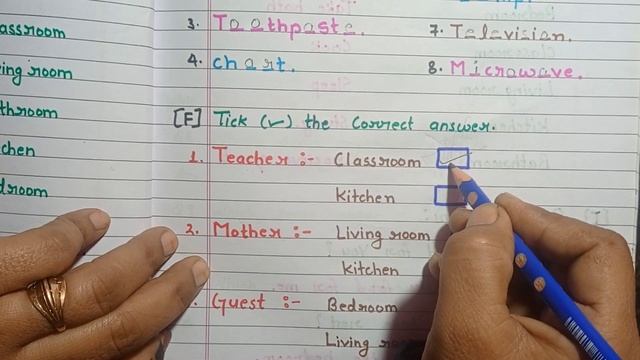 assroom
ing room
throom
chen
droom
3. Toothpaste.
7. Television.
4. chart.
8. Microwave.
[F] Tick (✓) the correct answer.
1. Teacher :- Classroom ✓
Kitchen
2. Mother :- Living room
Kitchen
Guest :- Bedroom
Living